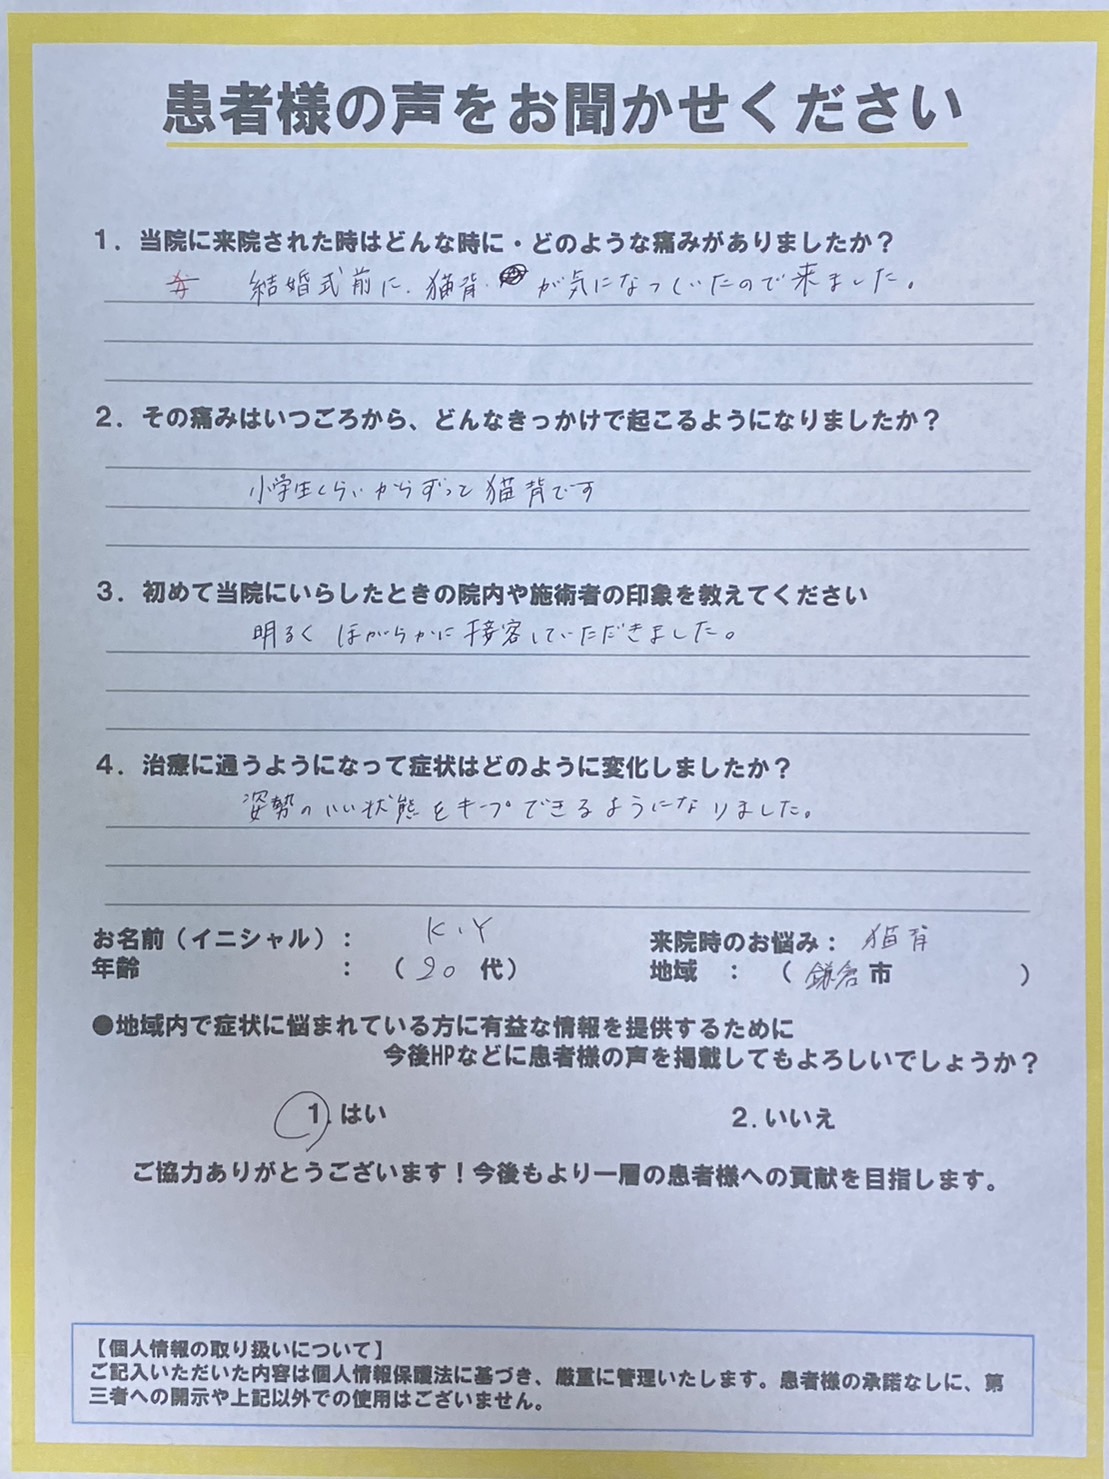 患者様の声をお聞かせください
1．当院に来院された時はどんな時に・どのような痛みがありましたか？
結婚式前に、猫背が気になっていたので来ました。
2．その痛みはいつごろから、どんなきっかけで起こるようになりましたか？
小学生くらいからずっと猫背です
3．初めて当院にいらしたときの院内や施術者の印象を教えてください
明るくほがらかに接客していただきました。
4．治療に通うようになって症状はどのように変化しましたか？
姿勢のいい状態をキープできるようになりました。
お名前（イニシャル）： K.Y 来院時のお悩み： 猫背
年齢 ： （ 20 代） 地域 ： （ 鎌倉 市 ）
●地域内で症状に悩まれている方に有益な情報を提供するために
今後HPなどに患者様の声を掲載してもよろしいでしょうか？
1. はい 2. いいえ
ご協力ありがとうございます！今後もより一層の患者様への貢献を目指します。
【個人情報の取り扱いについて】
ご記入いただいた内容は個人情報保護法に基づき、厳重に管理いたします。患者様の承諾なしに、第
三者への開示や上記以外での使用はございません。